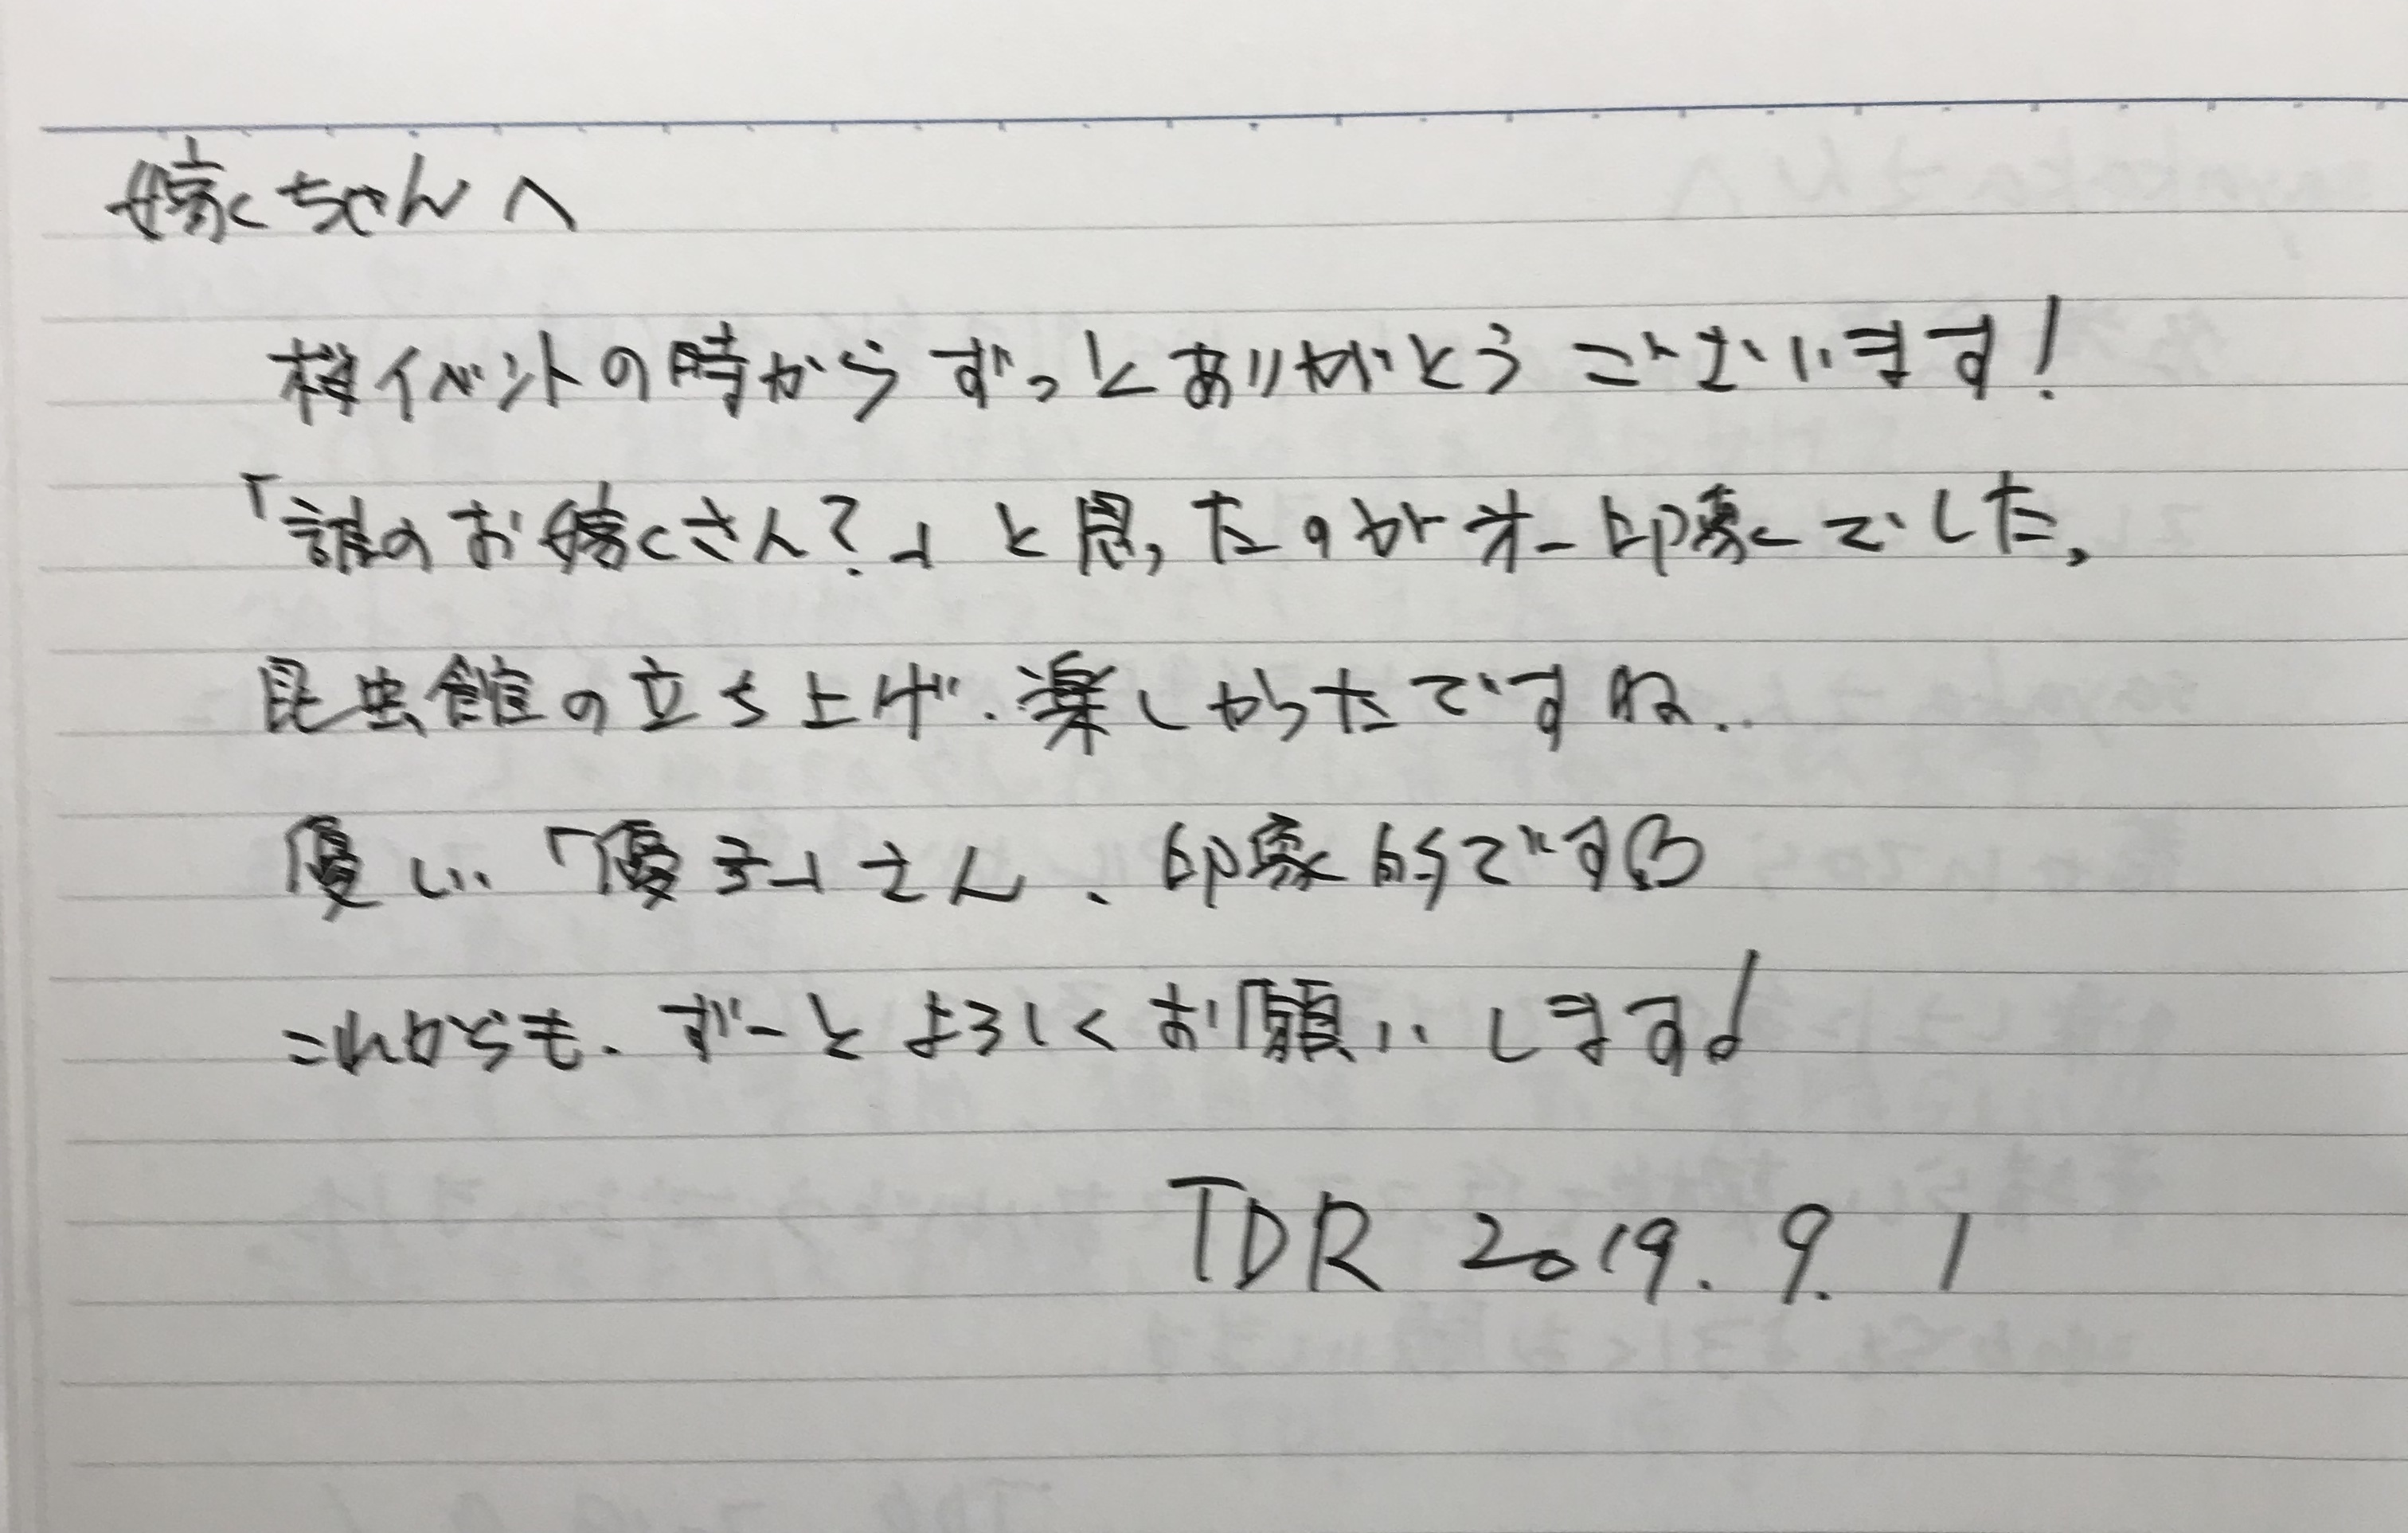 嫁ちゃんへ
桜イベントの時からずっとありがとうございます!
「誰のお嫁さん?」と思ったのが才一印象でした。
昆虫館の立ち上げ、楽しかったですね..
優しい「優子」さん、印象的です
これからも、ずーとよろしくお願いします!
TDR 2019. 9. 1